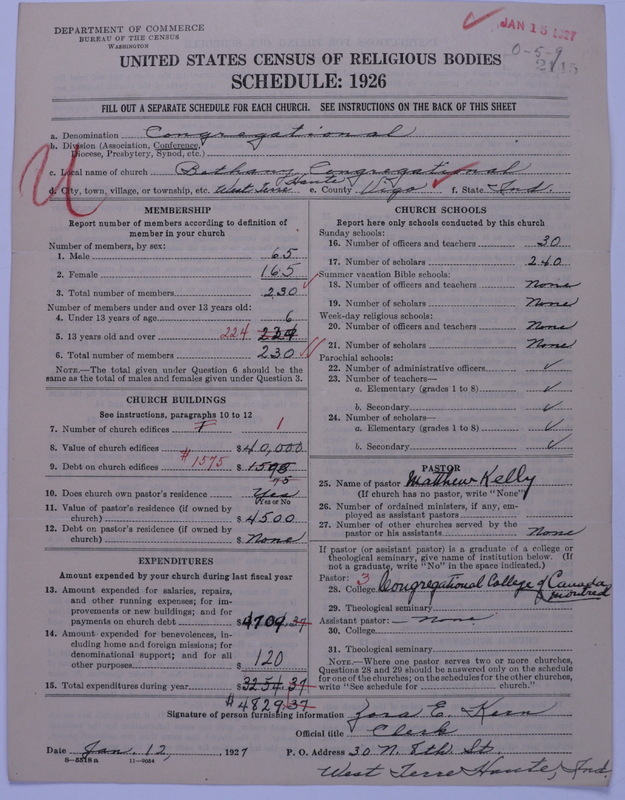 DEPARTMENT OF COMMERCE
BUREAU OF THE CENSUS
WASHINGTON
JAN 15 1927
0-5-9
UNITED STATES CENSUS OF RELIGIOUS BODIES
SCHEDULE: 1926
FILL OUT A SEPARATE SCHEDULE FOR EACH CHURCH. SEE INSTRUCTIONS ON THE BACK OF THIS SHEET
a. Denomination Congregational
b. Division (Association, Conference, Diocese, Presbytery, Synod, etc.)
c. Local name of church Bethany Congregational
d. City, town, village, or township, etc. West Terre Haute e. County Vigo f. State Ind.
MEMBERSHIP
Report number of members according to definition of
member in your church
Number of members, by sex:
1. Male 65
2. Female 165
3. Total number of members 230
Number of members under and over 13 years old:
4. Under 13 years of age 6
5. 13 years old and over 224
6. Total number of members 230
NOTE.—The total given under Question 6 should be
same as the total of males and females given under Question 3.
CHURCH BUILDINGS
See instructions, paragraphs 10 to 12
7. Number of church edifices 1
8. Value of church edifices $40,000
#1575
9. Debt on church edifices $1575
10. Does church own pastor's residence Yes
Yes or No
11. Value of pastor's residence (if owned by
church) $4500
12. Debt on pastor's residence (if owned by
church) $None
EXPENDITURES
Amount expended by your church during last fiscal year
13. Amount expended for salaries, repairs,
and other running expenses; for im-
provements or new buildings; and for
payments on church debt $4709.37
14. Amount expended for benevolences, in-
cluding home and foreign missions; for
denominational support; and for all
other purposes $120
15. Total expenditures during year $3254.37
$4829.37
CHURCH SCHOOLS
Report here only schools conducted by this church
Sunday schools:
16. Number of officers and teachers 30
17. Number of scholars 240
Summer vacation Bible schools:
18. Number of officers and teachers None
19. Number of scholars None
Week-day religious schools:
20. Number of officers and teachers None
21. Number of scholars None
Parochial schools:
22. Number of administrative officers ✓
23. Number of teachers—
a. Elementary (grades 1 to 8) ✓
b. Secondary ✓
24. Number of scholars—
a. Elementary (grades 1 to 8) ✓
b. Secondary ✓
PASTOR
25. Name of pastor Matthew Kelly
(If church has no pastor, write "None")
26. Number of ordained ministers, if any, em-
ployed as assistant pastors
27. Number of other churches served by the
pastor or his assistants None
If pastor (or assistant pastor) is a graduate of a college or
theological seminary, give name of institution below. (If
not a graduate, write "No" in the space indicated.)
Pastor: 3
28. College Congregational College of Canada
29. Theological seminary
Assistant pastor: — None
30. College
31. Theological seminary
NOTE.—Where one pastor serves two or more churches,
Questions 28 and 29 should be answered only on the schedule
for one of the churches; on the schedules for the other churches,
write "See schedule for church."
Signature of person furnishing information Zora E. Kern
Official title Clerk
Date Jan. 12, 1927 P. O. Address 30 N. 8th St.
8-5518 a 11-9054
West Terre Haute, Ind.